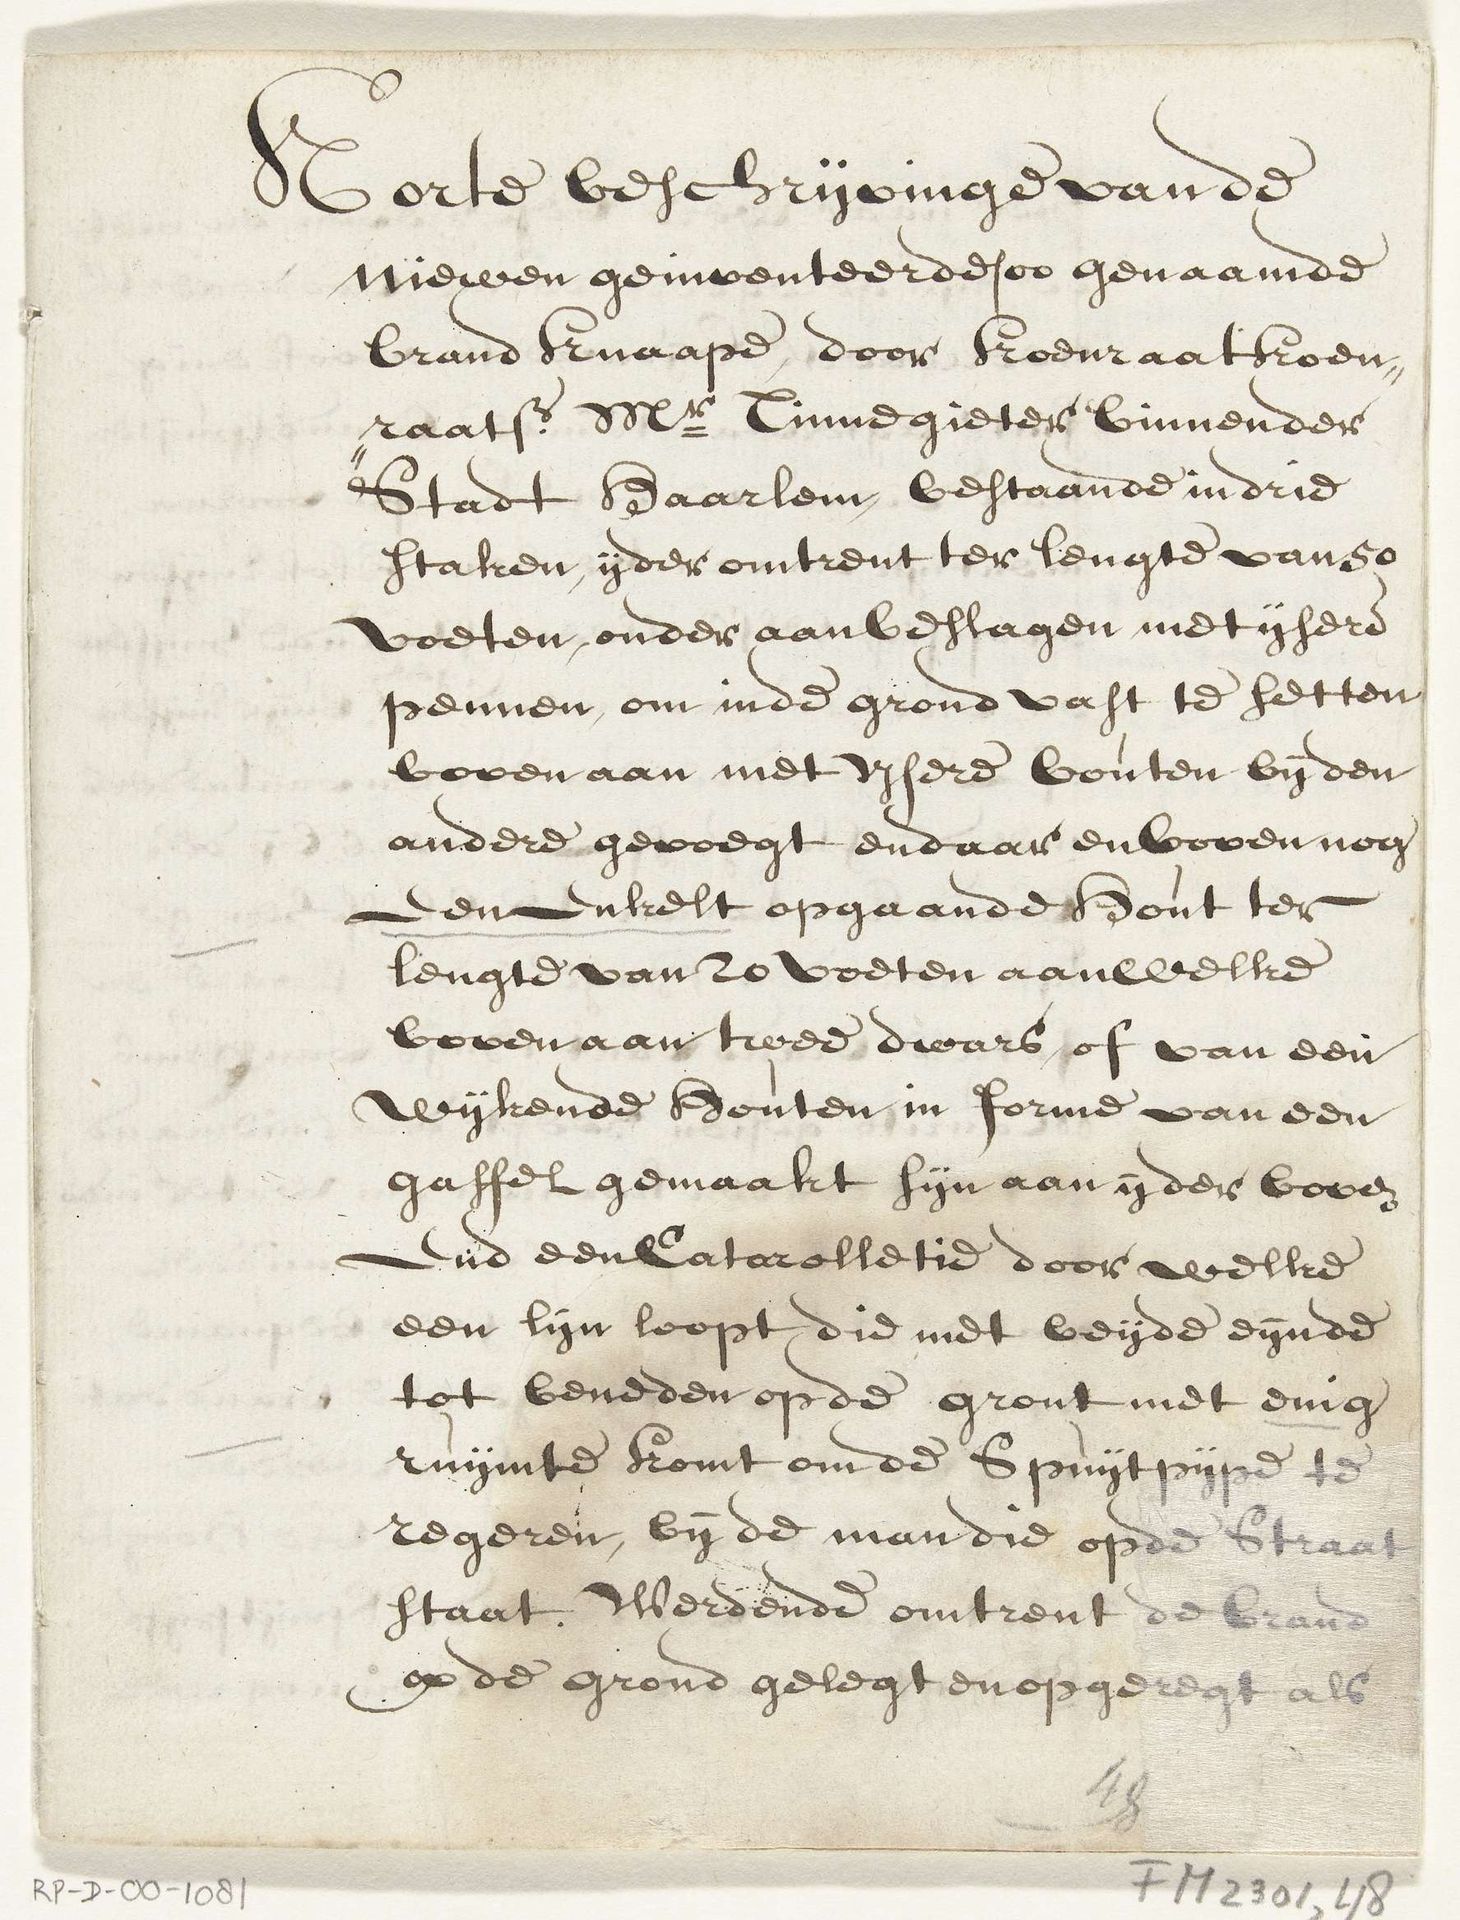 Korte beschrijvinge van de
niewen geinventeerde soo genaamde
brand knaape, door Koenraat Koen„
„raatsz. Mr. Tinnegieter binnen der
Stadt Haarlem, bestaande in drie
staken, ijder omtrent ter lengte van 50
voeten, onder aan beslagen met ijsere
pennen, om inde grond vast te setten
boven aan met Ijsere bouten bij den
andere gevoegt en daar en boven nog
Een Enkelt opgaande Hout ter
lengte van 20 voeten aan welke
boven aan twee dwars, of van een
wijkende Houten in forme van een
gaffel gemaakt sijn aan ijder boven
End een Catarolletie door welke
een lijn loopt die met beijde eijnde
tot beneden op de gront met enig
ruijmte komt om de Spuijtpijpe te
regeren, bij de man die op de Straat
staat. Werdende omtrent de brand
op de grond gelegt en opgeregt als
48
RP-D-00-1081
FM 2301, 48